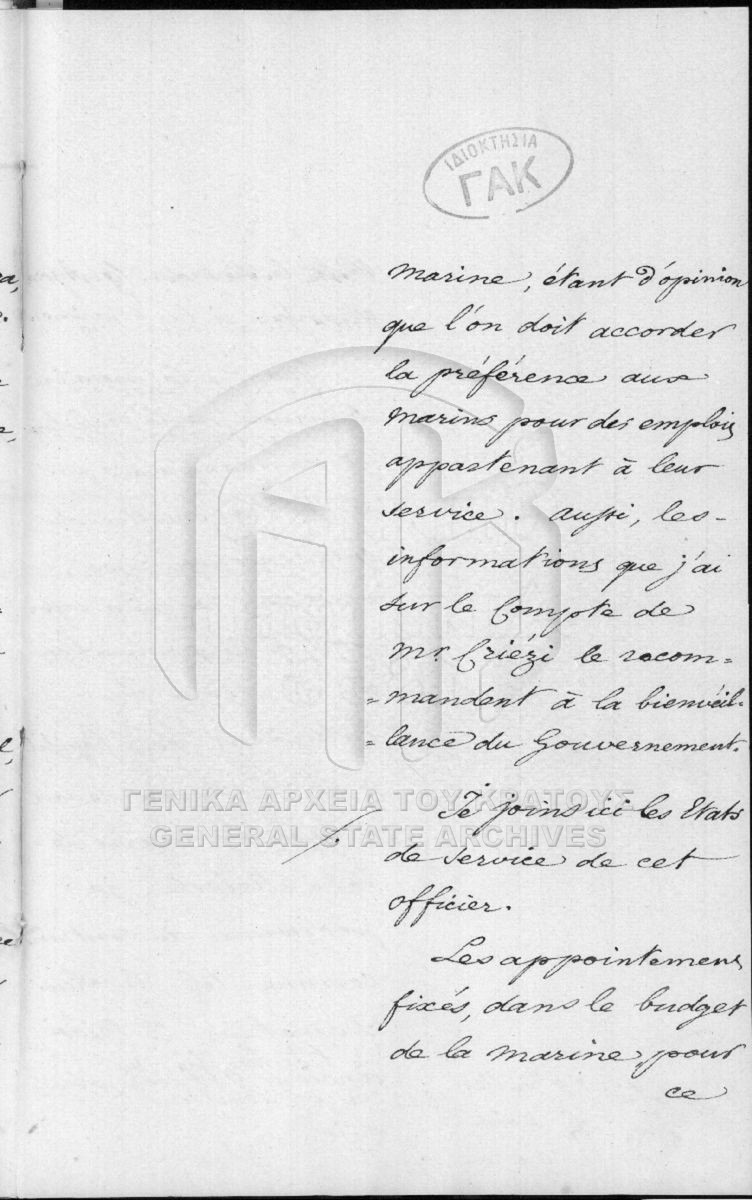 ΙΔΙΟΚΤΗΣΙΑ
ΓΑΚ
marine, étant d'opinion
que l'on doit accorder
la préférence aux
marins pour des emplois
appartenant à leur
service. Aussi, les
informations que j'ai
sur le Compte de
Mr. Criézi le recom=
=mandent à la bienveil=
=lance du Gouvernement.
Je joins ici les Etats
de service de cet
officier.
Les appointemens
fixés, dans le budget
de la marine, pour
ce
ΓΕΝΙΚΑ ΑΡΧΕΙΑ ΤΟΥ ΚΡΑΤΟΥΣ
GENERAL STATE ARCHIVES